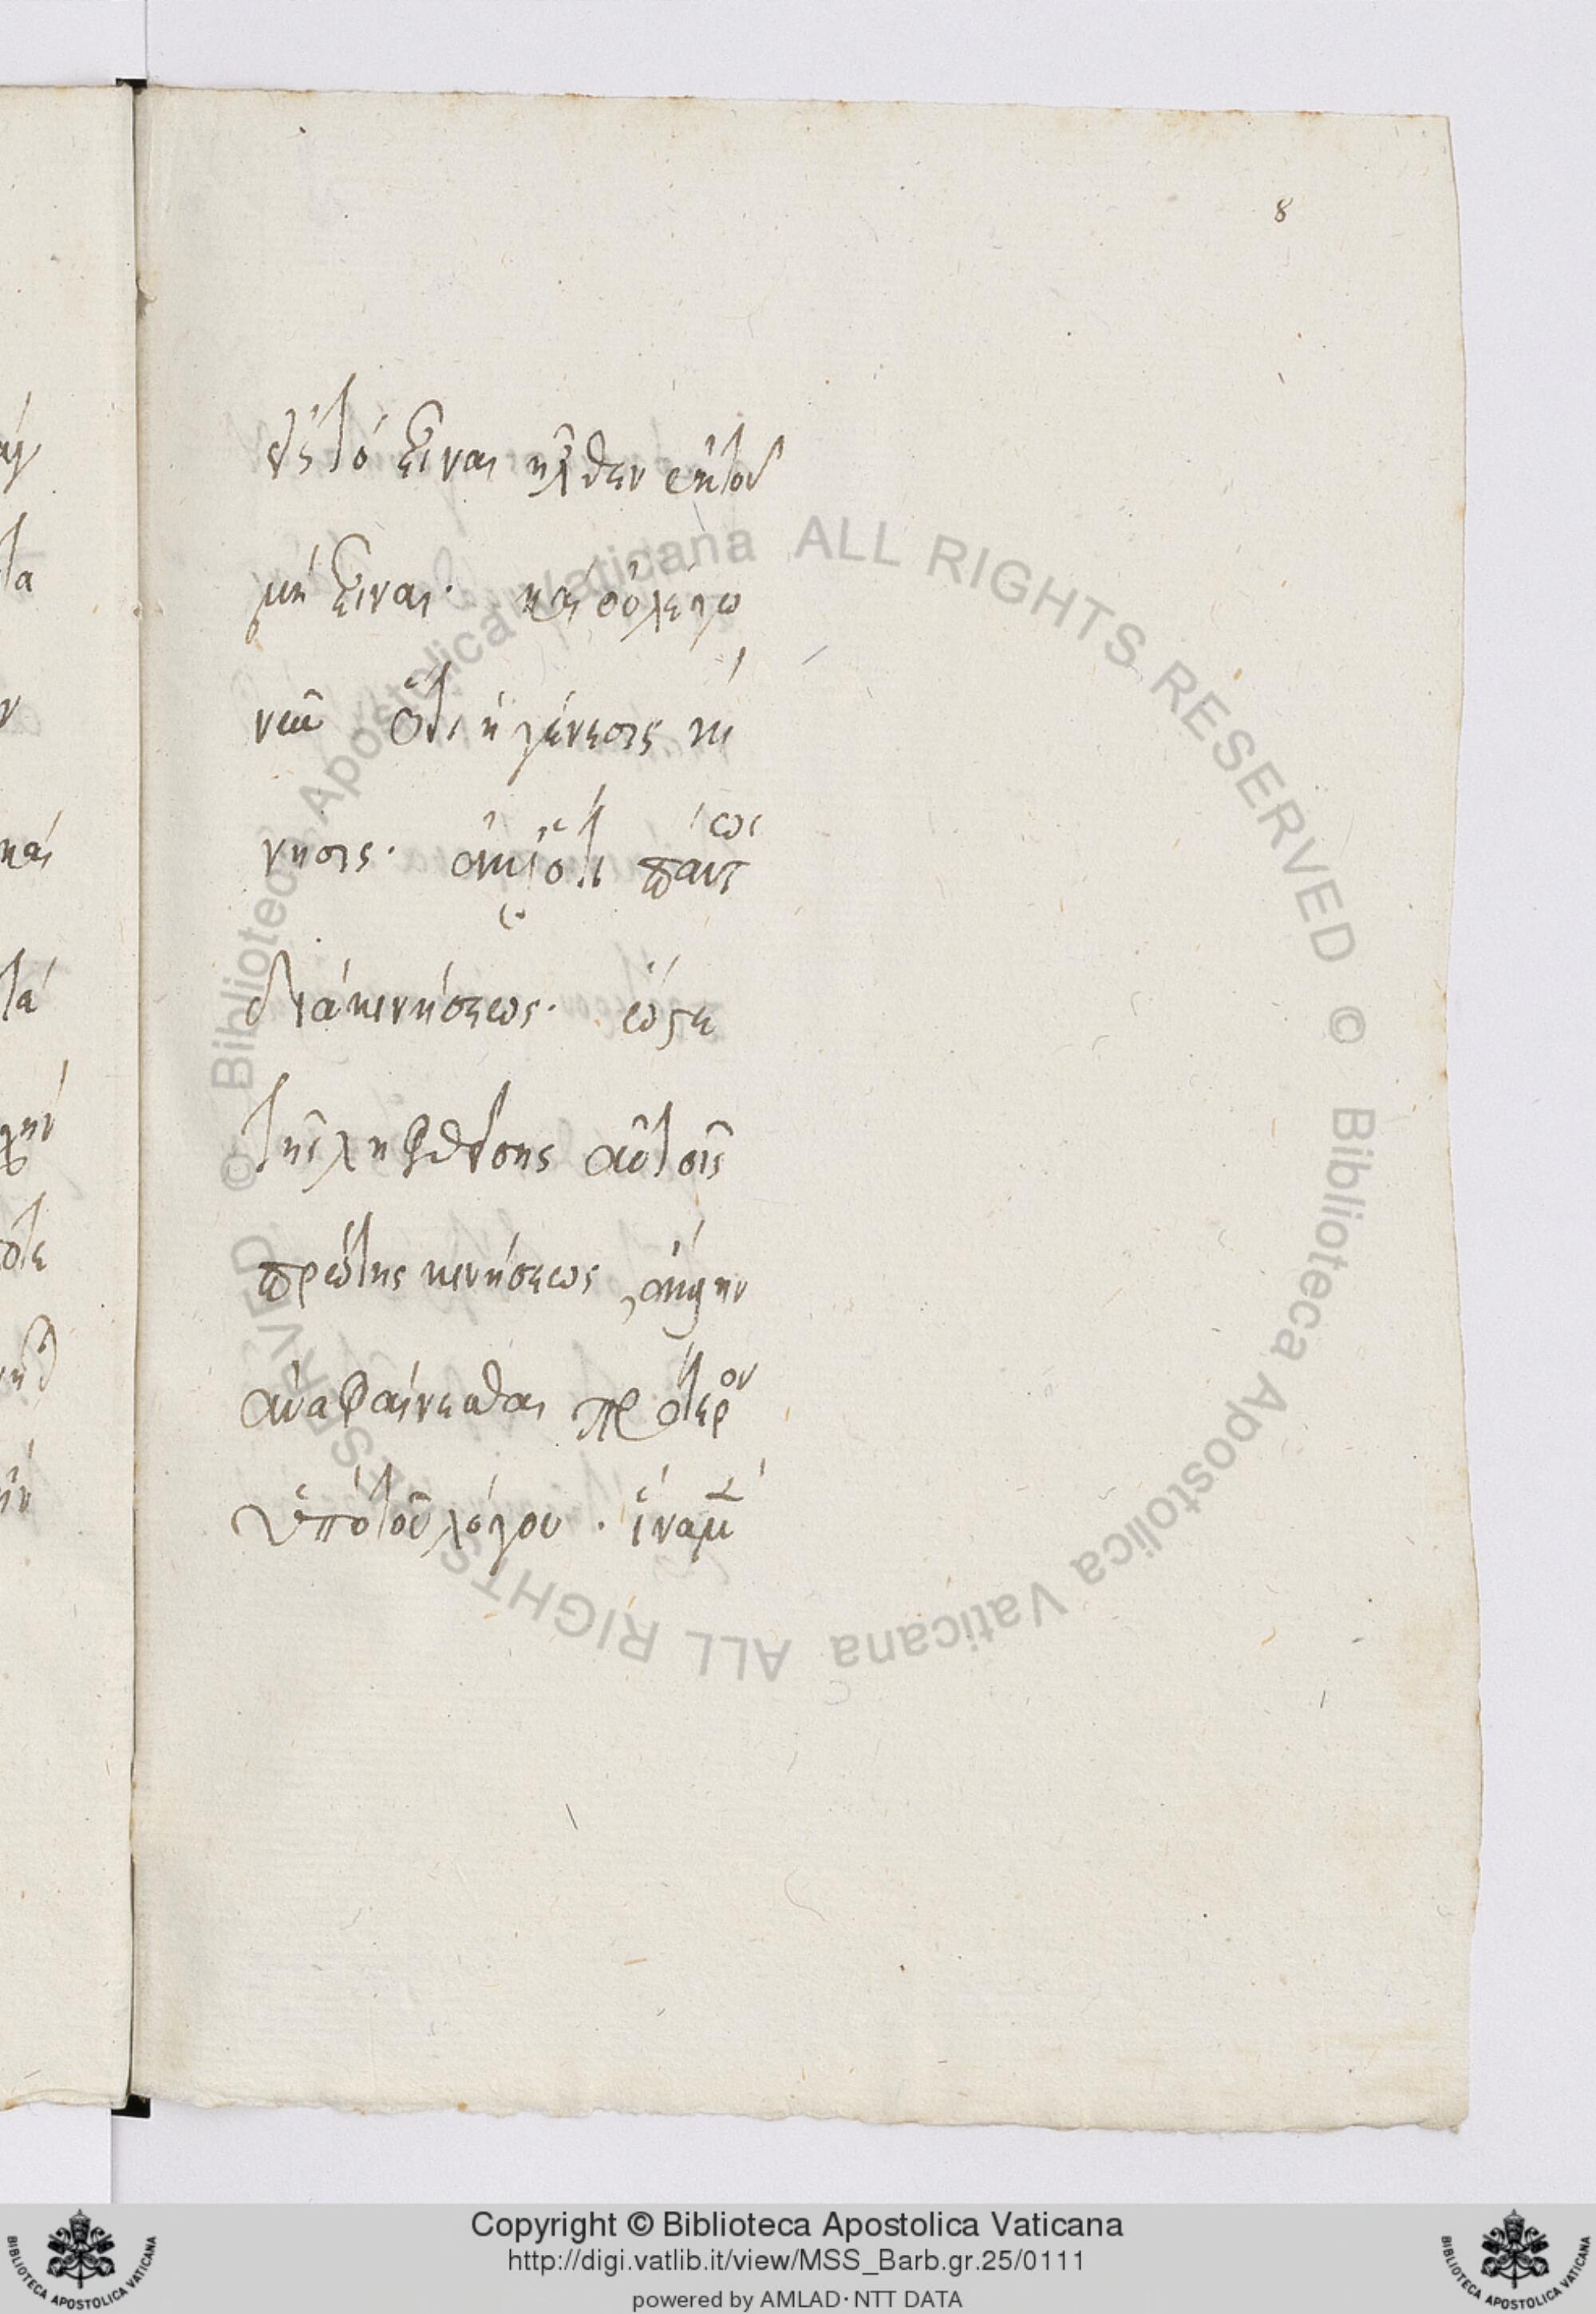 8
εἰς τὸ εἶναι ἦλθεν ἐκ τοῦ
μὴ εἶναι· καὶ οὐ λέγω
νῦν ὅτι ἡ γένεσις κί
νησις· ἀλλ' ὅτι πάντως
διὰ κινήσεως· ὥστε
τῆς ληφθείσης αὐτοῖς
πρώτης κινήσεως,
ἀναφαίνεσθαι πρότερον
ὑπὸ τοῦ λόγου · ἵνα μὴ
Copyright © Biblioteca Apostolica Vaticana
http://digi.vatlib.it/view/MSS_Barb.gr.25/0111
powered by AMLAD·NTT DATA
© Biblioteca Apostolica Vaticana ALL RIGHTS RESERVED © Biblioteca Apostolica Vaticana ALL RIGHTS RESERVED
BIBLIOTECA APOSTOLICA VATICANA
BIBLIOTECA APOSTOLICA VATICANA